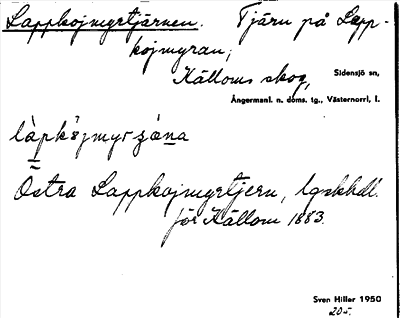 Lappkojmyrtjärnen. Tjärn på Lapp-
kojmyran;
Källoms skog,
Sidensjö sn,
Ångermanl. n. doms. tg., Västernorrl. l.
Östra Lappkojmyrtjern, lgskhdl.
för Källom 1883.
Sven Hiller 1950
205.